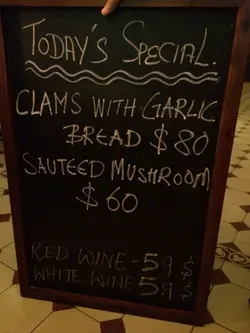 TODAY'S SPECIAL.
CLAMS WITH GARLIC
BREAD $80
SAUTEED MUSHROOM
$60
RED WINE - 59 $
WHITE WINE 59 $